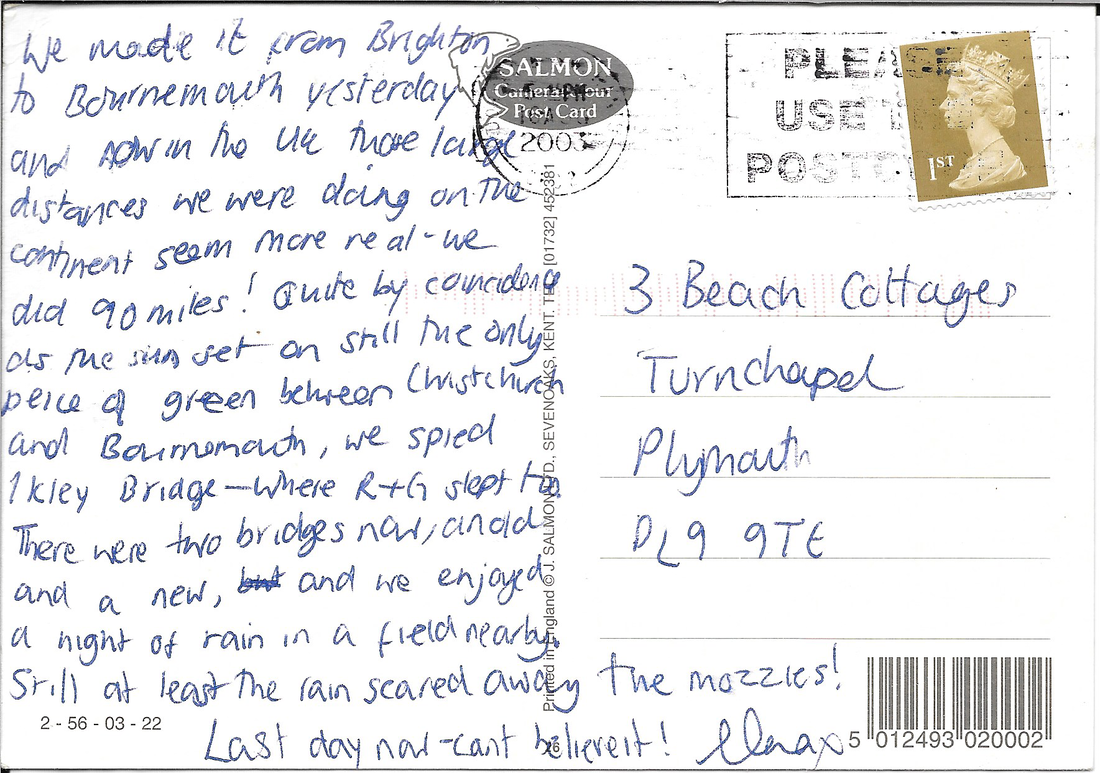 We made it from Brighton
to Bournemouth yesterday
and now in the UK those large
distances we were doing on the
continent seem more real - we
did 90 miles! Quite by coincidence
as the sun set on still the only
peice of green between Christchurch
and Bournemouth, we spied
Ikley Bridge - where R+G slept too.
There were two bridges now, an old
and a new, but and we enjoyed
a night of rain in a field nearby.
Still at least the rain scared away the mozzies!
Last day now - cant believe it!
SALMON
Cameracolour
Post Card
2003
PLEASE
USE
POSTCODE
1ST
3 Beach Cottages
Turnchapel
Plymouth
PL9 9TE
Printed in England © J. SALMON LTD., SEVENOAKS, KENT. TEL [01732] 452381
2 - 56 - 03 - 22
5 012493 020002